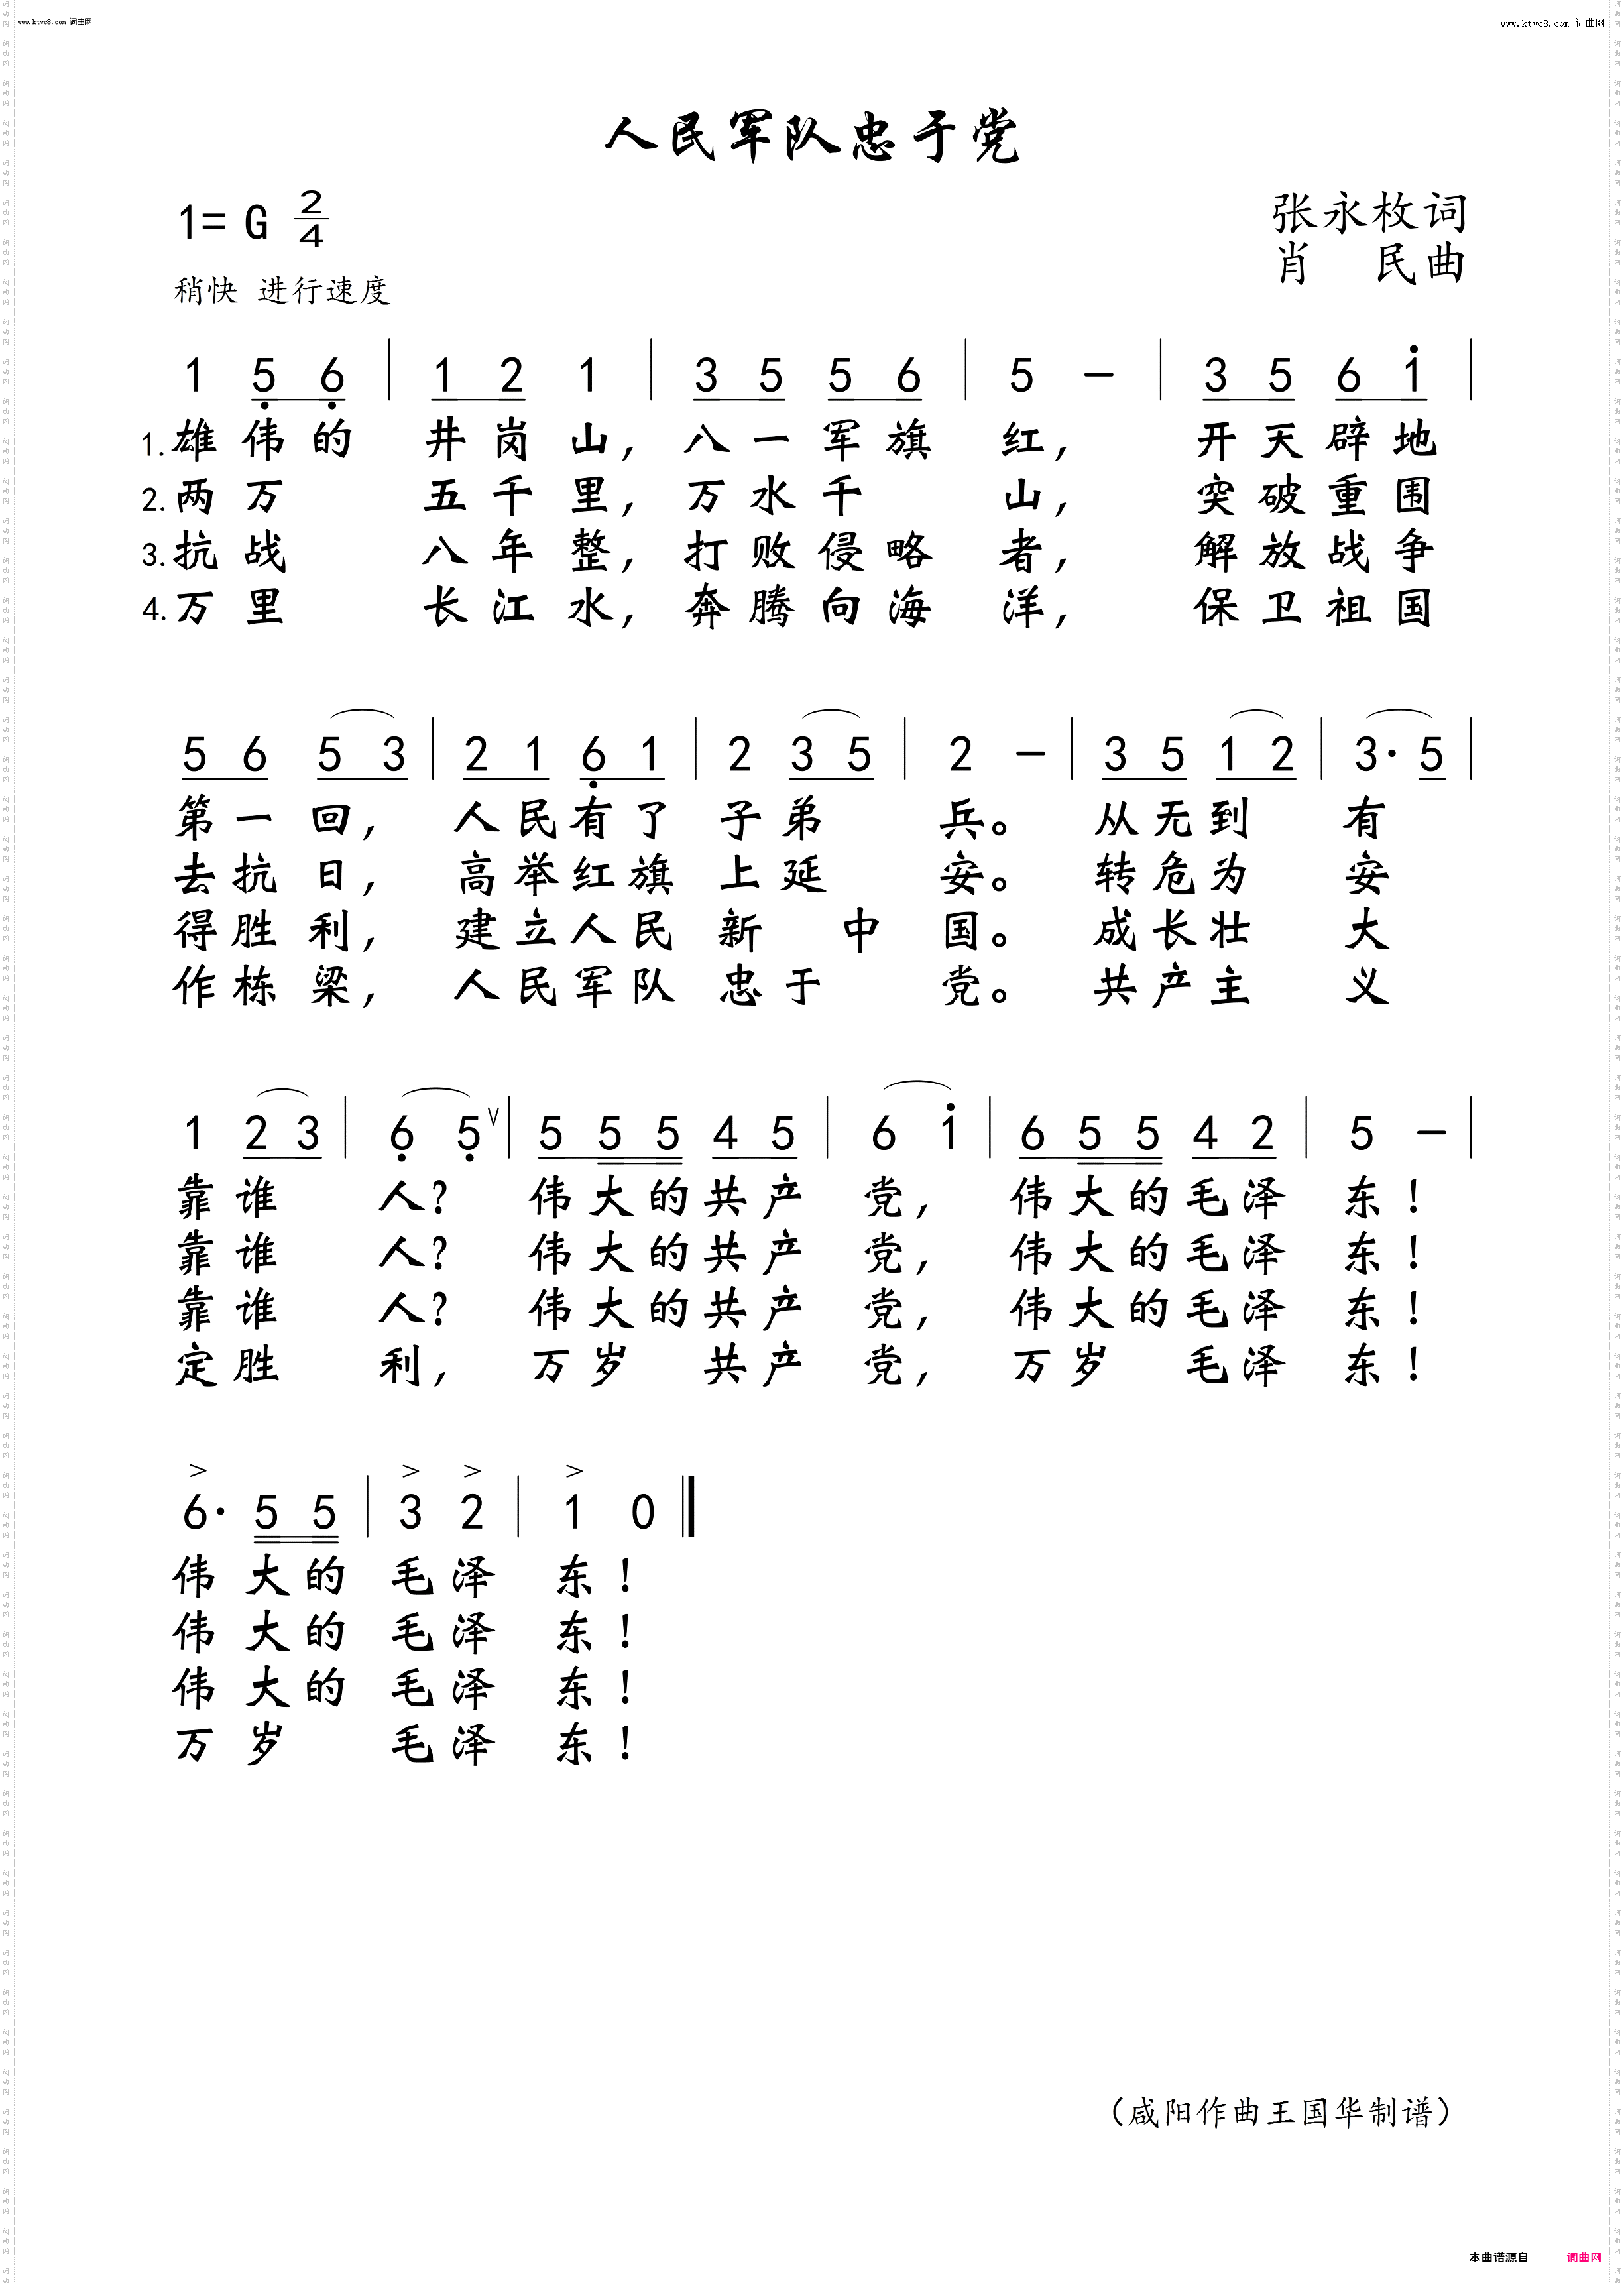 www.ktvc8.com 词曲网
www.ktvc8.com 词曲网
人民军队忠于党
1= G 2/4
张永枚词
肖 民曲
稍快 进行速度
1 5 6 | 1 2 1 | 3 5 5 6 | 5 － | 3 5 6 1 |
1.雄伟的 井岗山,八一军旗 红, 开天辟地
2.两万 五千里,万水千 山, 突破重围
3.抗战 八年整,打败侵略 者, 解放战争
4.万里 长江水,奔腾向海 洋, 保卫祖国
5 6 5 3 | 2 1 6 1 | 2 3 5 | 2 － | 3 5 1 2 | 3· 5 |
第一回, 人民有了 子弟 兵。 从无到 有
去抗日, 高举红旗 上延 安。 转危为 安
得胜利, 建立人民 新 中 国。 成长壮 大
作栋梁, 人民军队 忠于 党。 共产主 义
1 2 3 | 6 5 ∨ | 5 5 5 4 5 | 6 1 | 6 5 5 4 2 | 5 － |
靠谁 人? 伟大的共产 党, 伟大的毛泽 东!
靠谁 人? 伟大的共产 党, 伟大的毛泽 东!
靠谁 人? 伟大的共产 党, 伟大的毛泽 东!
定胜 利, 万岁 共产 党, 万岁 毛泽 东!
> > > >
6· 5 5 | 3 2 | 1 0
伟大的 毛泽 东!
伟大的 毛泽 东!
伟大的 毛泽 东!
万岁 毛泽 东!
（咸阳作曲王国华制谱）
本曲谱源自 词曲网